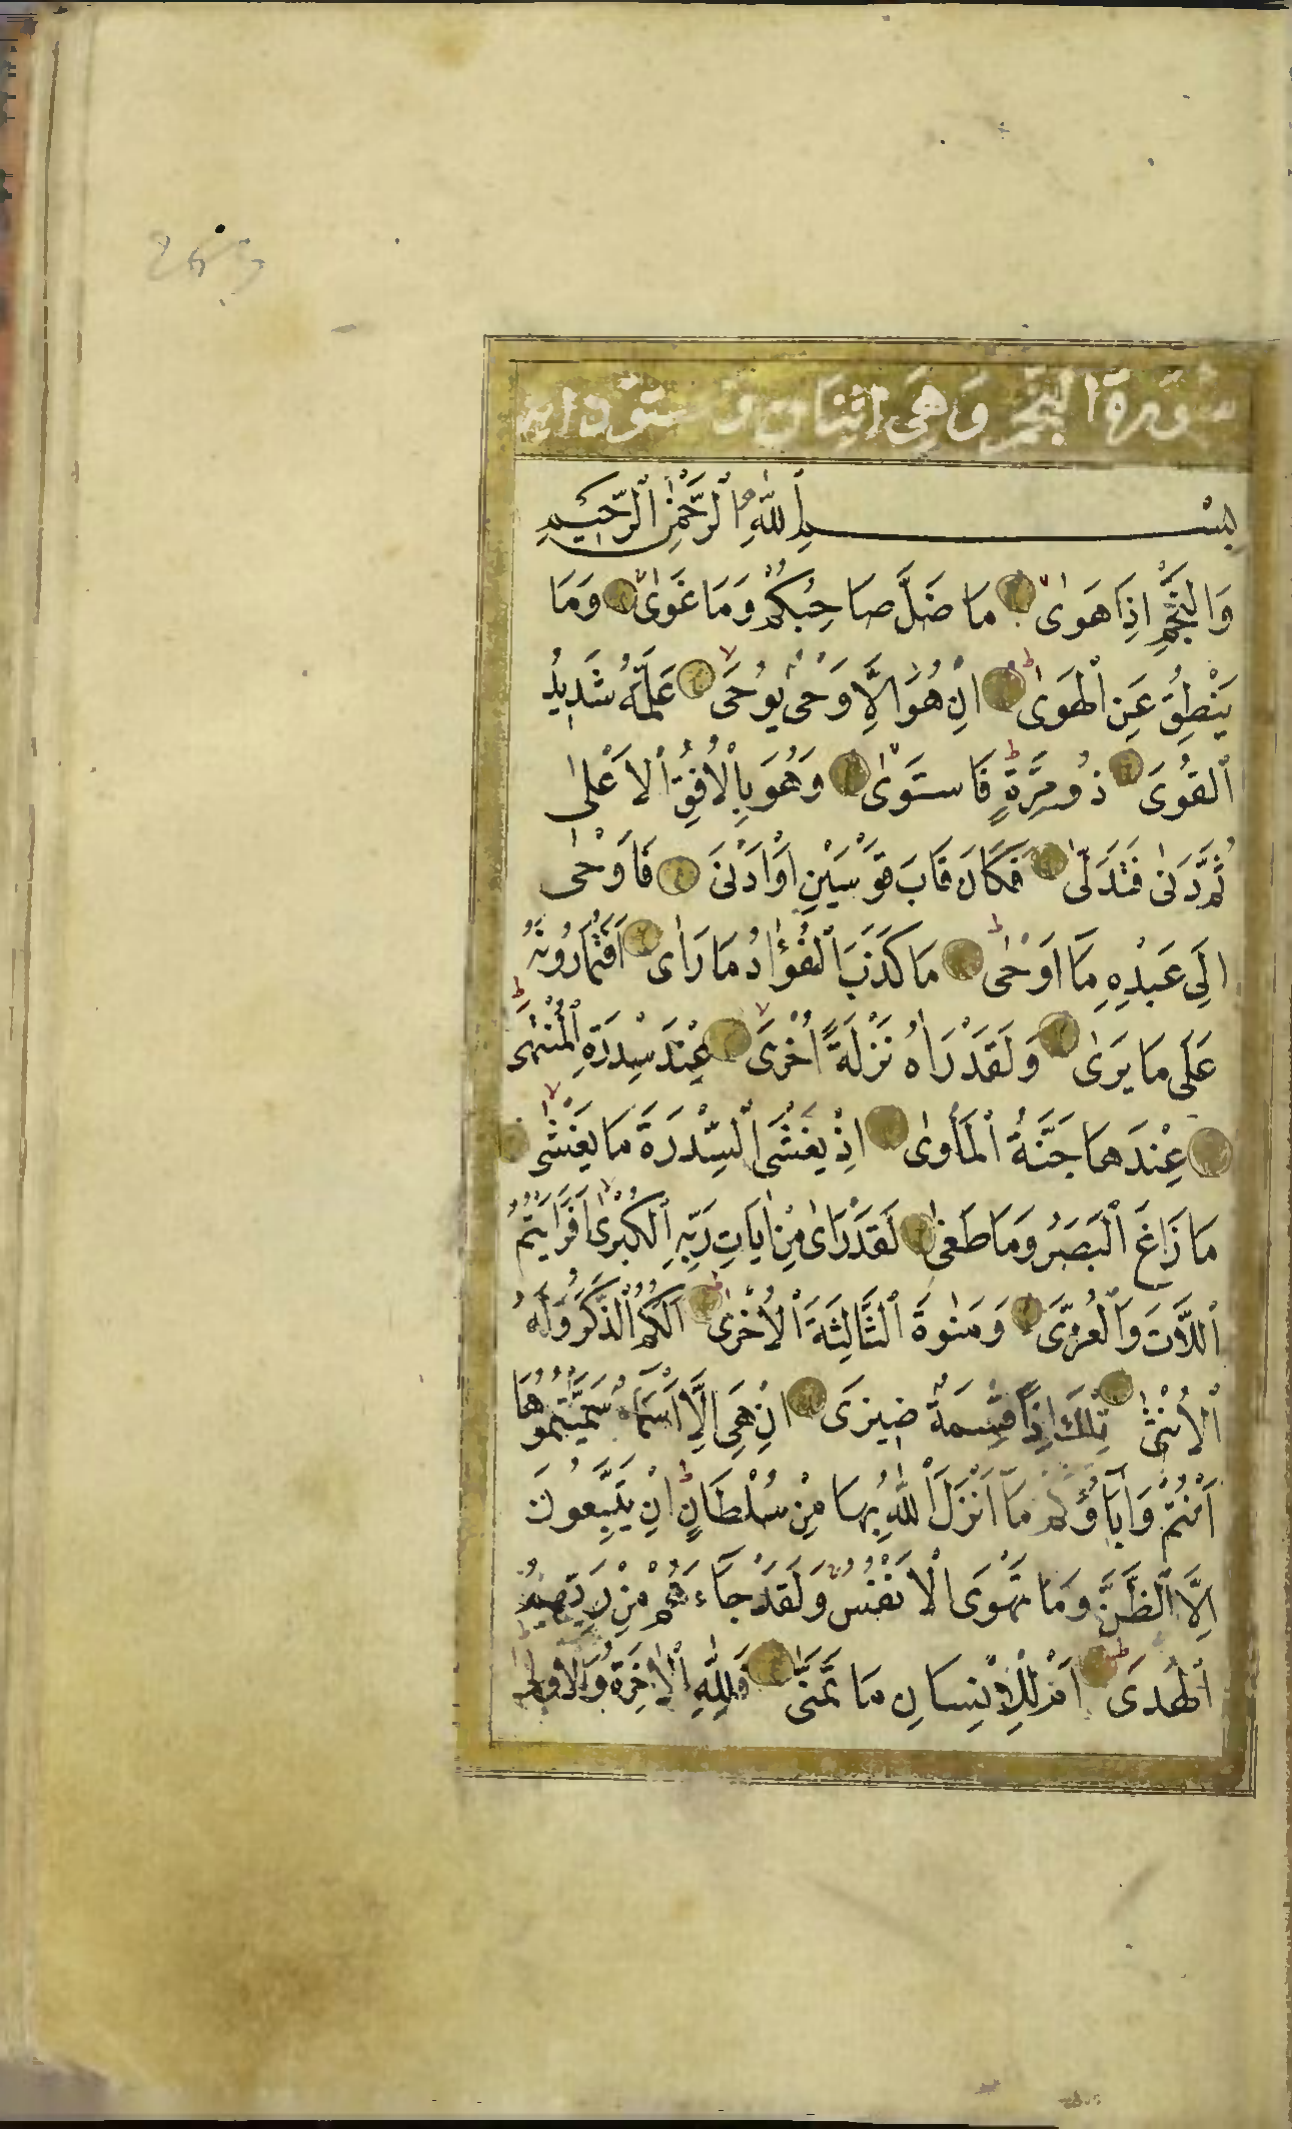 سورة النجم وهي اثنان وستون اية
بِسْمِ اللّٰهِ الرَّحْمٰنِ الرَّحِيمِ
وَالنَّجْمِ اِذَا هَوٰى مَا ضَلَّ صَاحِبُكُمْ وَمَا غَوٰى وَمَا
يَنْطِقُ عَنِ الْهَوٰى اِنْ هُوَ اِلَّا وَحْىٌ يُوحٰى عَلَّمَهُ شَدِيدُ
الْقُوٰى ذُو مِرَّةٍ فَاسْتَوٰى وَهُوَ بِالْاُفُقِ الْاَعْلٰى
ثُمَّ دَنٰى فَتَدَلّٰى فَكَانَ قَابَ قَوْسَيْنِ اَوْ اَدْنٰى فَاَوْحٰى
اِلٰى عَبْدِهِ مَا اَوْحٰى مَا كَذَبَ الْفُؤَادُ مَا رَاٰى اَفَتُمَارُونَهُ
عَلٰى مَا يَرٰى وَلَقَدْ رَاٰهُ نَزْلَةً اُخْرٰى عِنْدَ سِدْرَةِ الْمُنْتَهٰى
عِنْدَهَا جَنَّةُ الْمَأْوٰى اِذْ يَغْشَى السِّدْرَةَ مَا يَغْشٰى
مَا زَاغَ الْبَصَرُ وَمَا طَغٰى لَقَدْ رَاٰى مِنْ اٰيَاتِ رَبِّهِ الْكُبْرٰى اَفَرَاَيْتُمُ
اللَّاتَ وَالْعُزّٰى وَمَنٰوةَ الثَّالِثَةَ الْاُخْرٰى اَلَكُمُ الذَّكَرُ وَلَهُ
الْاُنْثٰى تِلْكَ اِذًا قِسْمَةٌ ضِيزٰى اِنْ هِىَ اِلَّا اَسْمَاءٌ سَمَّيْتُمُوهَا
اَنْتُمْ وَاٰبَاؤُكُمْ مَا اَنْزَلَ اللّٰهُ بِهَا مِنْ سُلْطَانٍ اِنْ يَتَّبِعُونَ
اِلَّا الظَّنَّ وَمَا تَهْوَى الْاَنْفُسُ وَلَقَدْ جَاءَهُمْ مِنْ رَبِّهِمُ
الْهُدٰى اَمْ لِلْاِنْسَانِ مَا تَمَنّٰى فَلِلّٰهِ الْاٰخِرَةُ وَالْاُولٰى